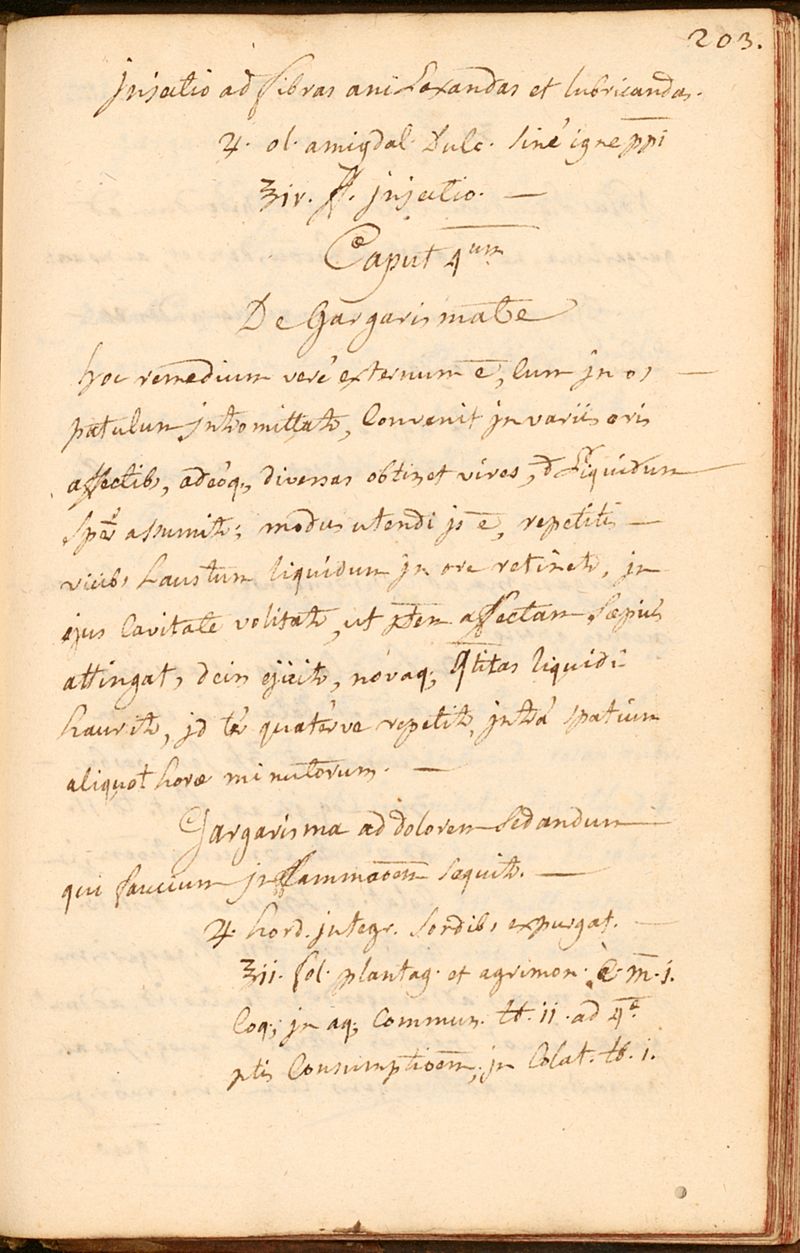 203.
injectio ad fibras ani Laxandas et lubricandas.
♃. ol. amigdal. Dulc. sine igne ppi
℥iv. ff. injectio. —
Caput 4um
De Gargarismate
hoc remedium verè externum ē, Cum jn os —
patulum jntromittatr, Convenit jn variis oris
affectib, adeòq; diversas obtinet vires, Liquidum
assumitr; modus utendi js ē, repetitis —
vicib, haustum liquidum jn ore retinetr, jn
ejus Cavitate volitatr, ut ptem affectam Sæpius
attingat, dein ejicitr, novaq; qtitas liquidi
hauritr, jd tèr quatèrve repetitr, jntrà spatium
aliquot horæ minutorum. —
Gargarisma ad dolorem Sedandum
qui faucium jnflammaōem sequitr. —
♃. hord. jntegr. Sordib, expurgat. —
℥ii. fol. plantag. et agrimon. ā. m. j.
Coq; jn aq; Commun. ℔. ii. ad 4æ
ptis Consumptioēm; jn Colat. ℔. i.